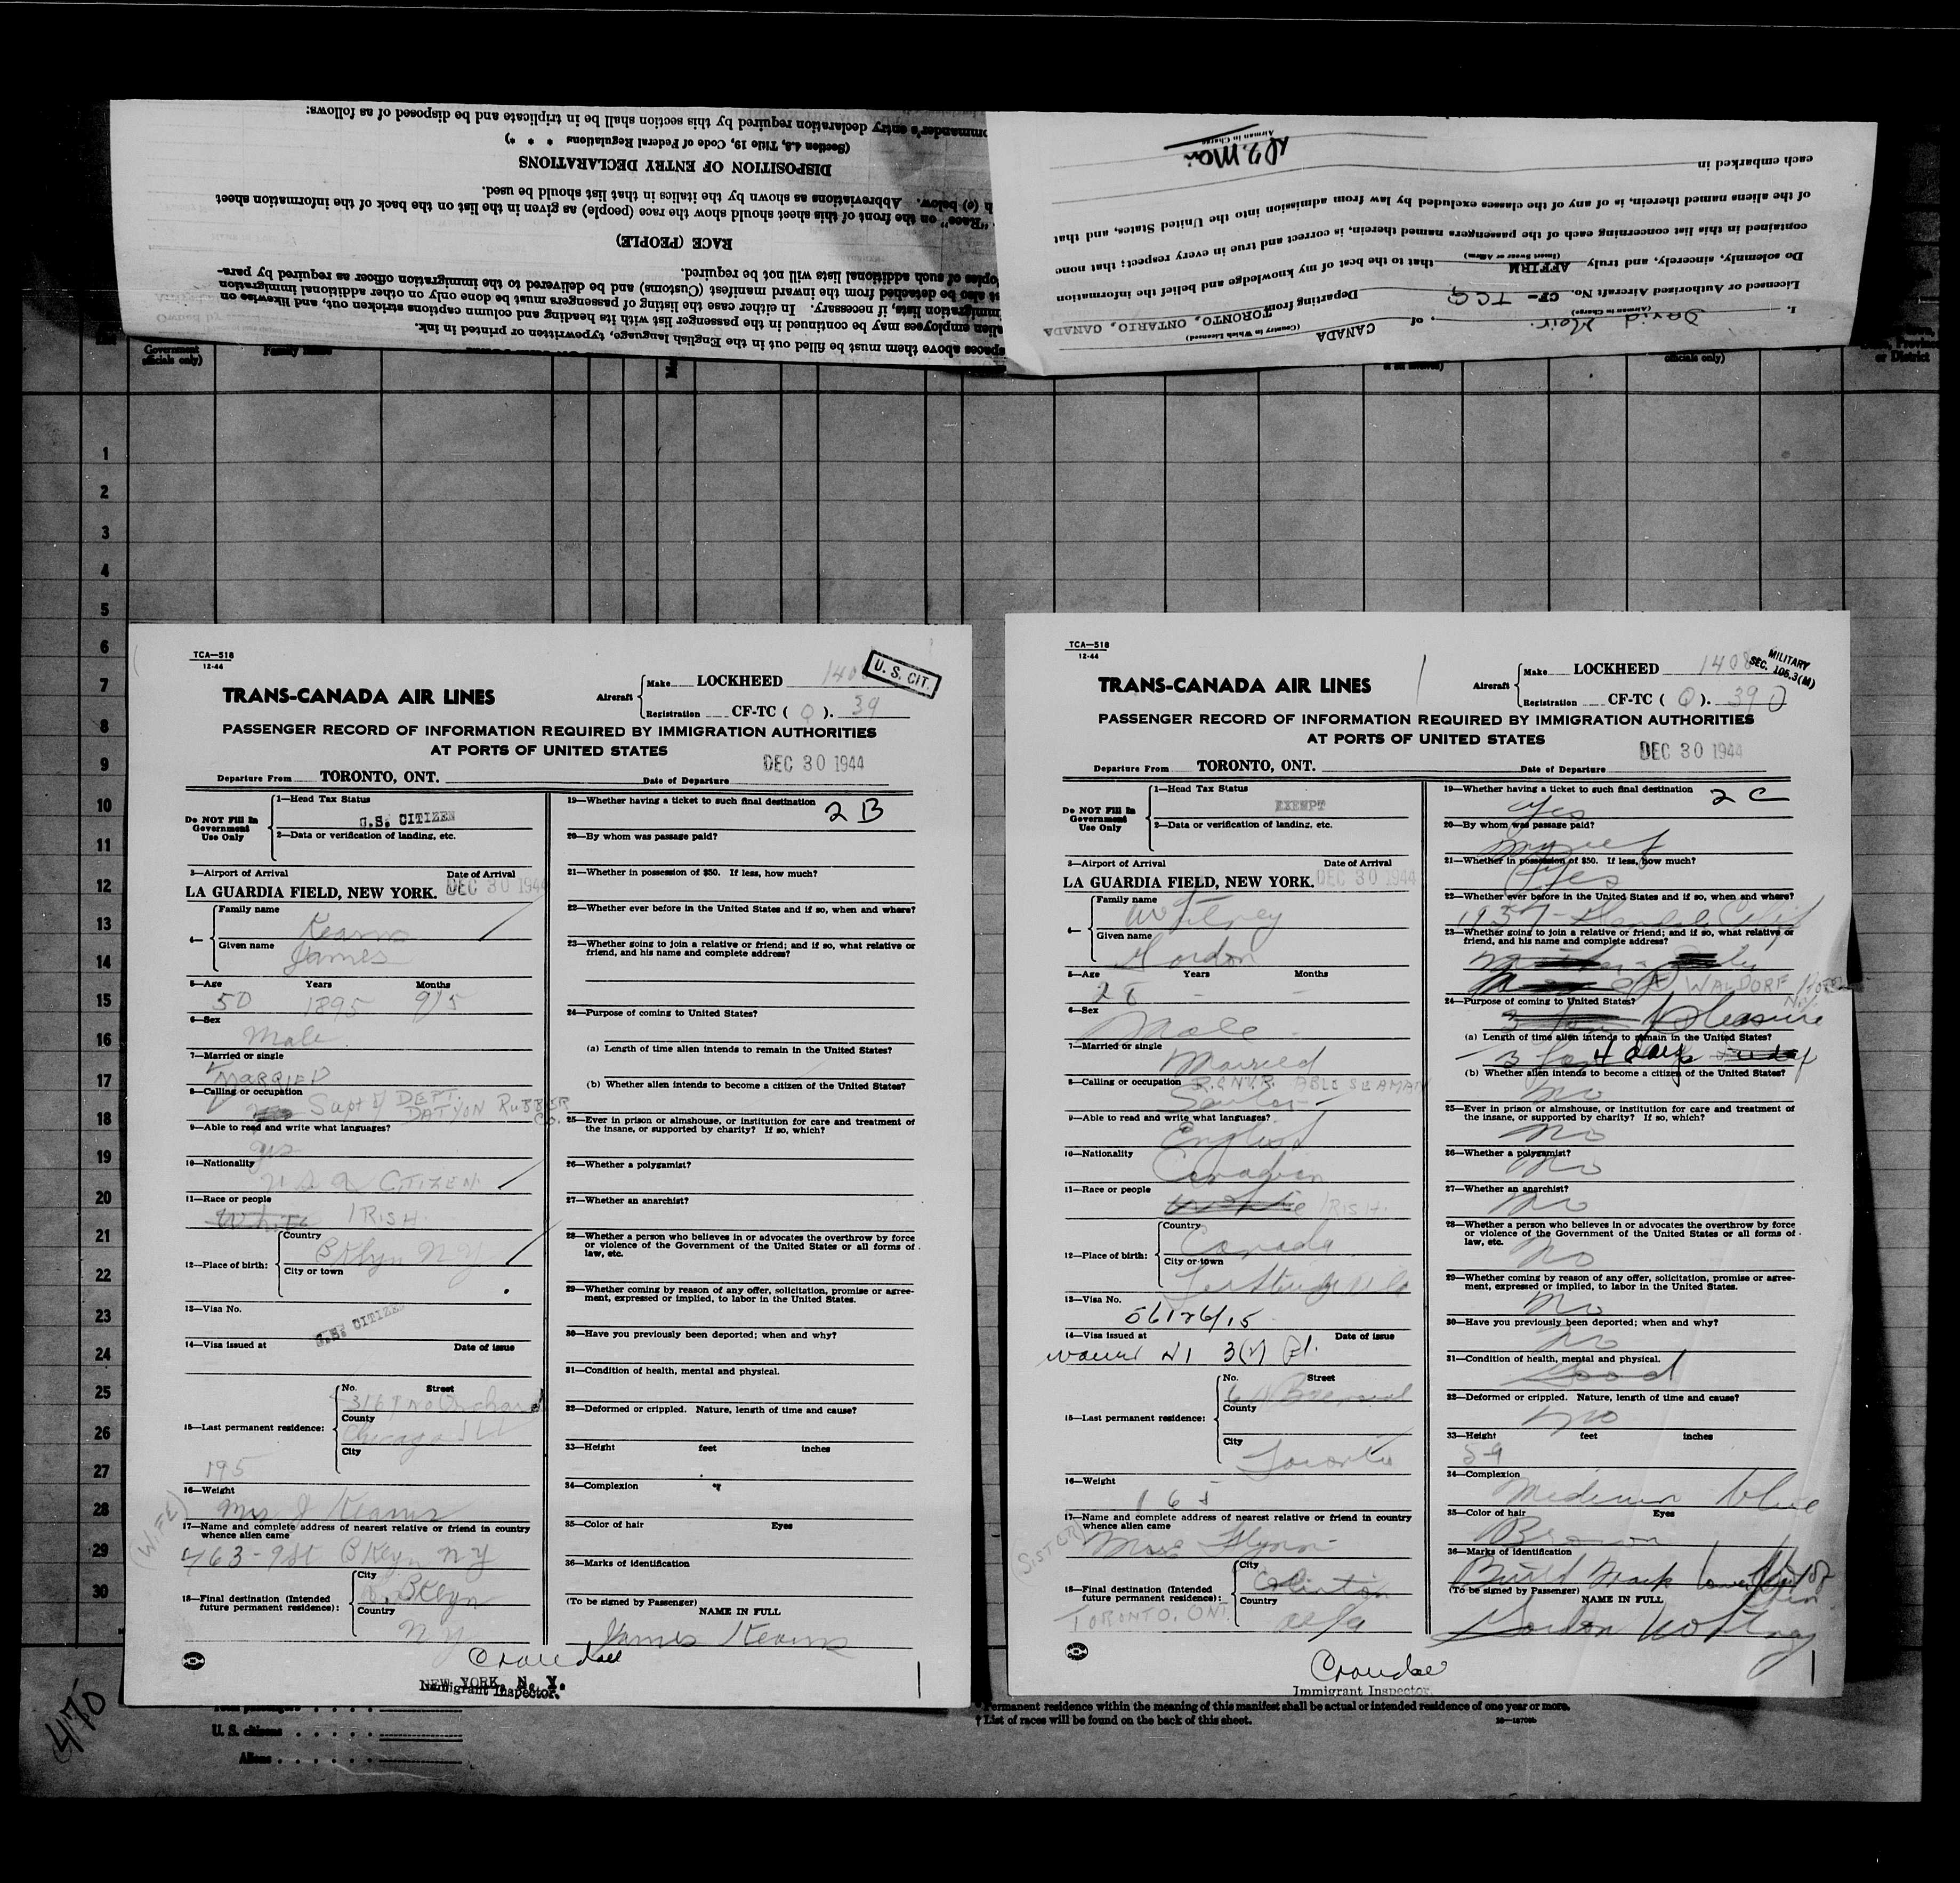 ommander's entry declaration required by this section shall be in triplicate and be disposed of as follows:
(Section 4.8, Title 19, Code of Federal Regulations * * *)
DISPOSITION OF ENTRY DECLARATIONS
h (e) below. Abbreviations as shown by the italics in that list should be used.
"Race," on the front of this sheet should show the race (people) as given in the list on the back of the information sheet
RACE (PEOPLE)
opies of such additional lists will not be required.
st also be detached from the inward manifest (Customs) and be delivered to the immigration officer as required by para-
mmigration lists, if necessary. In either case the listing of passengers must be done only on other additional immigration
alien employees may be continued in the passenger list with its heading and column captions stricken out, and likewise on
spaces above them must be filled out in the English language, typewritten or printed in ink.
Airman in Charge
each embarked in
of the aliens named therein, is of any of the classes excluded by law from admission into the United States, and that
contained in this list concerning each of the passengers named therein, is correct and true in every respect; that none
Do solemnly, sincerely, and truly AFFIRM that to the best of my knowledge and belief the information
(Insert Swear or Affirm)
Licensed or Authorized Aircraft No. CF- TCQ Departing from TORONTO, ONTARIO, CANADA
(Airman in Charge) (Country in Which Licensed)
I, David Moir, of CANADA
Government
officials only)
Family name
officials only)
or District
1
2
3
4
5
6
7
8
9
10
11
12
13
14
15
16
17
18
19
20
21
22
23
24
25
26
27
28
29
30
TCA—518
12-44
TRANS-CANADA AIR LINES
Aircraft
Make LOCKHEED 1408
U. S. CIT.
Registration CF-TC ( Q ). 39
PASSENGER RECORD OF INFORMATION REQUIRED BY IMMIGRATION AUTHORITIES
AT PORTS OF UNITED STATES
DEC 30 1944
Departure From TORONTO, ONT. Date of Departure
Do NOT Fill In
Government
Use Only
1—Head Tax Status
U.S. CITIZEN
2—Data or verification of landing, etc.
3—Airport of Arrival Date of Arrival
LA GUARDIA FIELD, NEW YORK. DEC 30 1944
4—
Family name
Kearns
Given name
James
5—Age Years Months
50 1895 9/5
6—Sex
Male
7—Married or single
MARRIED
8—Calling or occupation
Supt of DEPT.
DAYTON RUBBER Co.
9—Able to read and write what languages?
yes
10—Nationality
U S A CITIZEN
11—Race or people
White IRISH.
12—Place of birth:
Country
BKlyn N Y
City or town
13—Visa No.
U.S. CITIZEN
14—Visa issued at Date of issue
15—Last permanent residence:
No. Street
3167 No Orchard
County
Chicago Ill
City
195
16—Weight
Mrs J Kearns
(WIFE)
17—Name and complete address of nearest relative or friend in country
whence alien came
463-9 St BKlyn N Y
18—Final destination (Intended
future permanent residence):
City
BKlyn
Country
N Y
19—Whether having a ticket to such final destination
2 B
20—By whom was passage paid?
21—Whether in possession of $50. If less, how much?
22—Whether ever before in the United States and if so, when and where?
23—Whether going to join a relative or friend; and if so, what relative or
friend, and his name and complete address?
24—Purpose of coming to United States?
(a) Length of time alien intends to remain in the United States?
(b) Whether alien intends to become a citizen of the United States?
25—Ever in prison or almshouse, or institution for care and treatment of
the insane, or supported by charity? If so, which?
26—Whether a polygamist?
27—Whether an anarchist?
28—Whether a person who believes in or advocates the overthrow by force
or violence of the Government of the United States or all forms of
law, etc.
29—Whether coming by reason of any offer, solicitation, promise or agree-
ment, expressed or implied, to labor in the United States.
30—Have you previously been deported; when and why?
31—Condition of health, mental and physical.
32—Deformed or crippled. Nature, length of time and cause?
33—Height feet inches
34—Complexion
35—Color of hair Eyes
36—Marks of identification
(To be signed by Passenger)
NAME IN FULL
James Kearns
NEW YORK, N. Y.
Immigrant Inspector.
TCA—518
12-44
TRANS-CANADA AIR LINES
Aircraft
Make LOCKHEED 1408
MILITARY
SEC. 106.3(M)
Registration CF-TC ( Q ). 39
PASSENGER RECORD OF INFORMATION REQUIRED BY IMMIGRATION AUTHORITIES
AT PORTS OF UNITED STATES
DEC 30 1944
Departure From TORONTO, ONT. Date of Departure
Do NOT Fill In
Government
Use Only
1—Head Tax Status
EXEMPT
2—Data or verification of landing, etc.
3—Airport of Arrival Date of Arrival
LA GUARDIA FIELD, NEW YORK. DEC 30 1944
4—
Family name
Given name
Gordon
5—Age Years Months
28 - -
6—Sex
Male
7—Married or single
Married
8—Calling or occupation R.C.N.V.R. ABLE SEAMAN
Sailor
9—Able to read and write what languages?
English
10—Nationality
Canadian
11—Race or people
White IRISH.
12—Place of birth:
Country
Canada
City or town
13—Visa No.
14—Visa issued at Date of issue
15—Last permanent residence:
No. Street
County
City
Toronto
16—Weight
165
17—Name and complete address of nearest relative or friend in country
whence alien came
(SISTER) Flynn
18—Final destination (Intended
future permanent residence):
TORONTO, ONT.
City
Country
19—Whether having a ticket to such final destination
2 C
Yes
20—By whom was passage paid?
myself
21—Whether in possession of $50. If less, how much?
Yes
22—Whether ever before in the United States and if so, when and where?
1937 Calif
23—Whether going to join a relative or friend; and if so, what relative or
friend, and his name and complete address?
WALDORF HOTEL
N.Y.
24—Purpose of coming to United States?
Pleasure
(a) Length of time alien intends to remain in the United States?
4 days
(b) Whether alien intends to become a citizen of the United States?
No
25—Ever in prison or almshouse, or institution for care and treatment of
the insane, or supported by charity? If so, which?
No
26—Whether a polygamist?
No
27—Whether an anarchist?
No
28—Whether a person who believes in or advocates the overthrow by force
or violence of the Government of the United States or all forms of
law, etc.
No
29—Whether coming by reason of any offer, solicitation, promise or agree-
ment, expressed or implied, to labor in the United States.
No
30—Have you previously been deported; when and why?
No
31—Condition of health, mental and physical.
Good
32—Deformed or crippled. Nature, length of time and cause?
No
33—Height feet inches
5-9
34—Complexion
Medium blue
35—Color of hair Eyes
Brown
36—Marks of identification
(To be signed by Passenger)
NAME IN FULL
Gordon
Immigrant Inspector.
470
Total passengers . . . .
U. S. citizens . . . . .
Aliens . . . . . .
* Permanent residence within the meaning of this manifest shall be actual or intended residence of one year or more.
† List of races will be found on the back of this sheet.